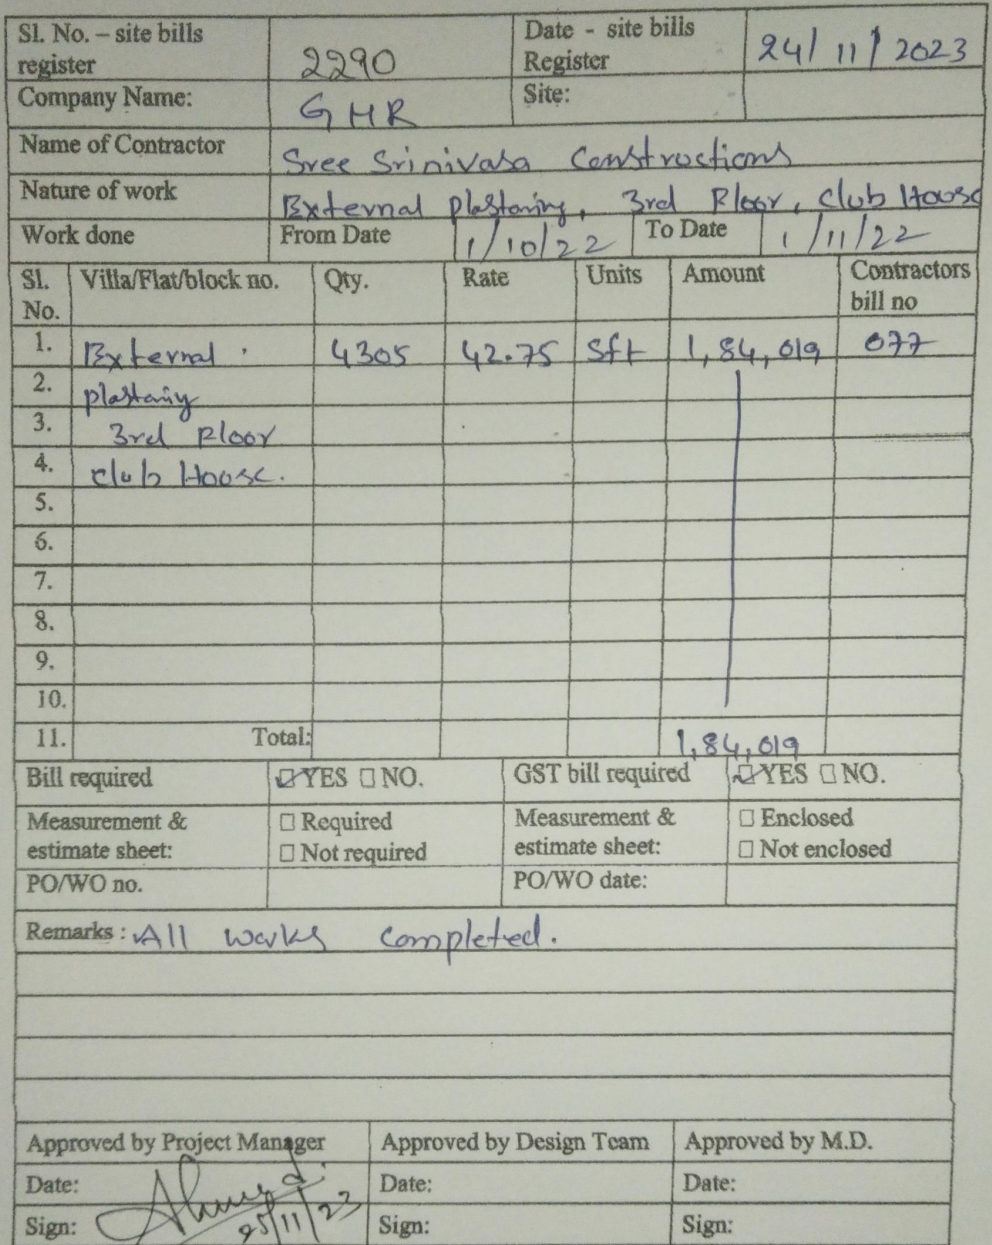 Sl. No. – site bills register 2290 Date - site bills Register 24/11/2023
Company Name: GHR Site:
Name of Contractor Sree Srinivasa Constructions
Nature of work External plastaring, 3rd Floor, Club House
Work done From Date 1/10/22 To Date 1/11/22
Sl. No. Villa/Flat/block no. Qty. Rate Units Amount Contractors bill no
1. External 4305 42.75 Sft 1,84,019 077
2. plastaring
3. 3rd Floor
4. club House.
5.
6.
7.
8.
9.
10.
11. Total: 1,84,019
Bill required YES NO. GST bill required YES NO.
Measurement & estimate sheet: Required Not required Measurement & estimate sheet: Enclosed Not enclosed
PO/WO no. PO/WO date:
Remarks : All works completed.
Approved by Project Manager Approved by Design Team Approved by M.D.
Date: Date: Date:
Sign: 25/11/23 Sign: Sign: